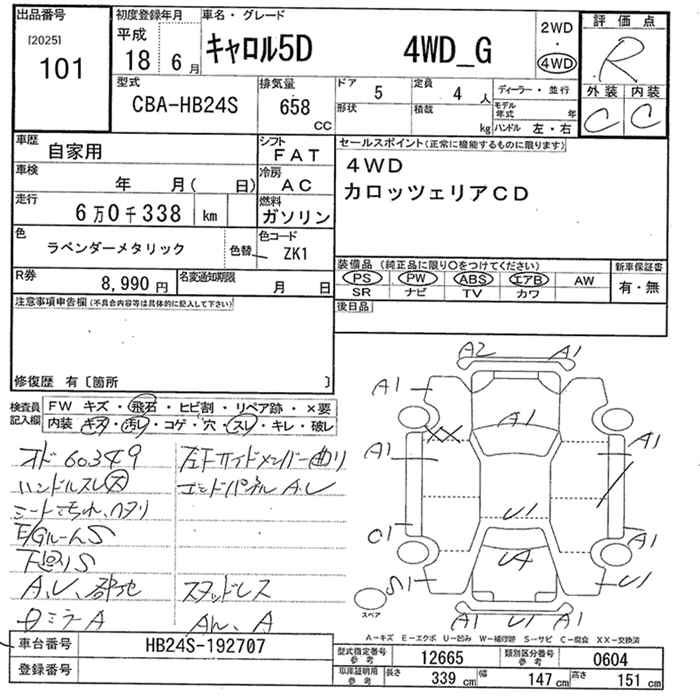 出品番号
[2025]
101
初度登録年月
平成
18 年 6 月
車名・グレード
キャロル5D 4WD_G
2WD
・
4WD
評価点
R
外装 内装
C C
型式
CBA-HB24S
排気量
658
CC
ドア
5
定員
4 人
形状
積載
kg
ディーラー・並行
モデル
年式 年
ハンドル 左・右
車歴
自家用
シフト
FAT
車検
年 月( 日)
冷房
AC
走行
6万0千338 km
燃料
ガソリン
色
ラベンダーメタリック
色替
色コード
ZK1
R券
8,990 円
名変通知期限
月 日
セールスポイント(正常に機能するものに限ります)
4WD
カロッツェリアCD
装備品(純正品に限り○をつけてください)
PS PW ABS エアB AW
SR ナビ TV カワ
新車保証書
有・無
後日品
注意事項申告欄(不具合内容等は具体的に記入して下さい)
修復歴 有〔箇所 〕
検査員
記入欄
FW キズ・飛石・ヒビ割・リペア跡・×要
内装 キズ・汚レ・コゲ・穴・スレ・キレ・破レ
オド60349
ハンドルスレ大
シートよごれ、ヘタリ
E/GルームS
下廻りS
A.U、
ミラーA
左Fサイドメンバー曲り
エンドパネルA.U
スタッドレス
A2 A1
A1 A1
A1
XX
A1 A1
U1
C1 A1
U4
S1 U1
A1 U1 A1
スペア
A-キズ E-エクボ U-凹み W-補修跡 S-サビ C-腐食 XX-交換済
車台番号
HB24S-192707
登録番号
型式指定番号
参考
12665
類別区分番号
参考
0604
車庫証明用
参考
長さ 339 cm
幅 147 cm
高さ 151 cm